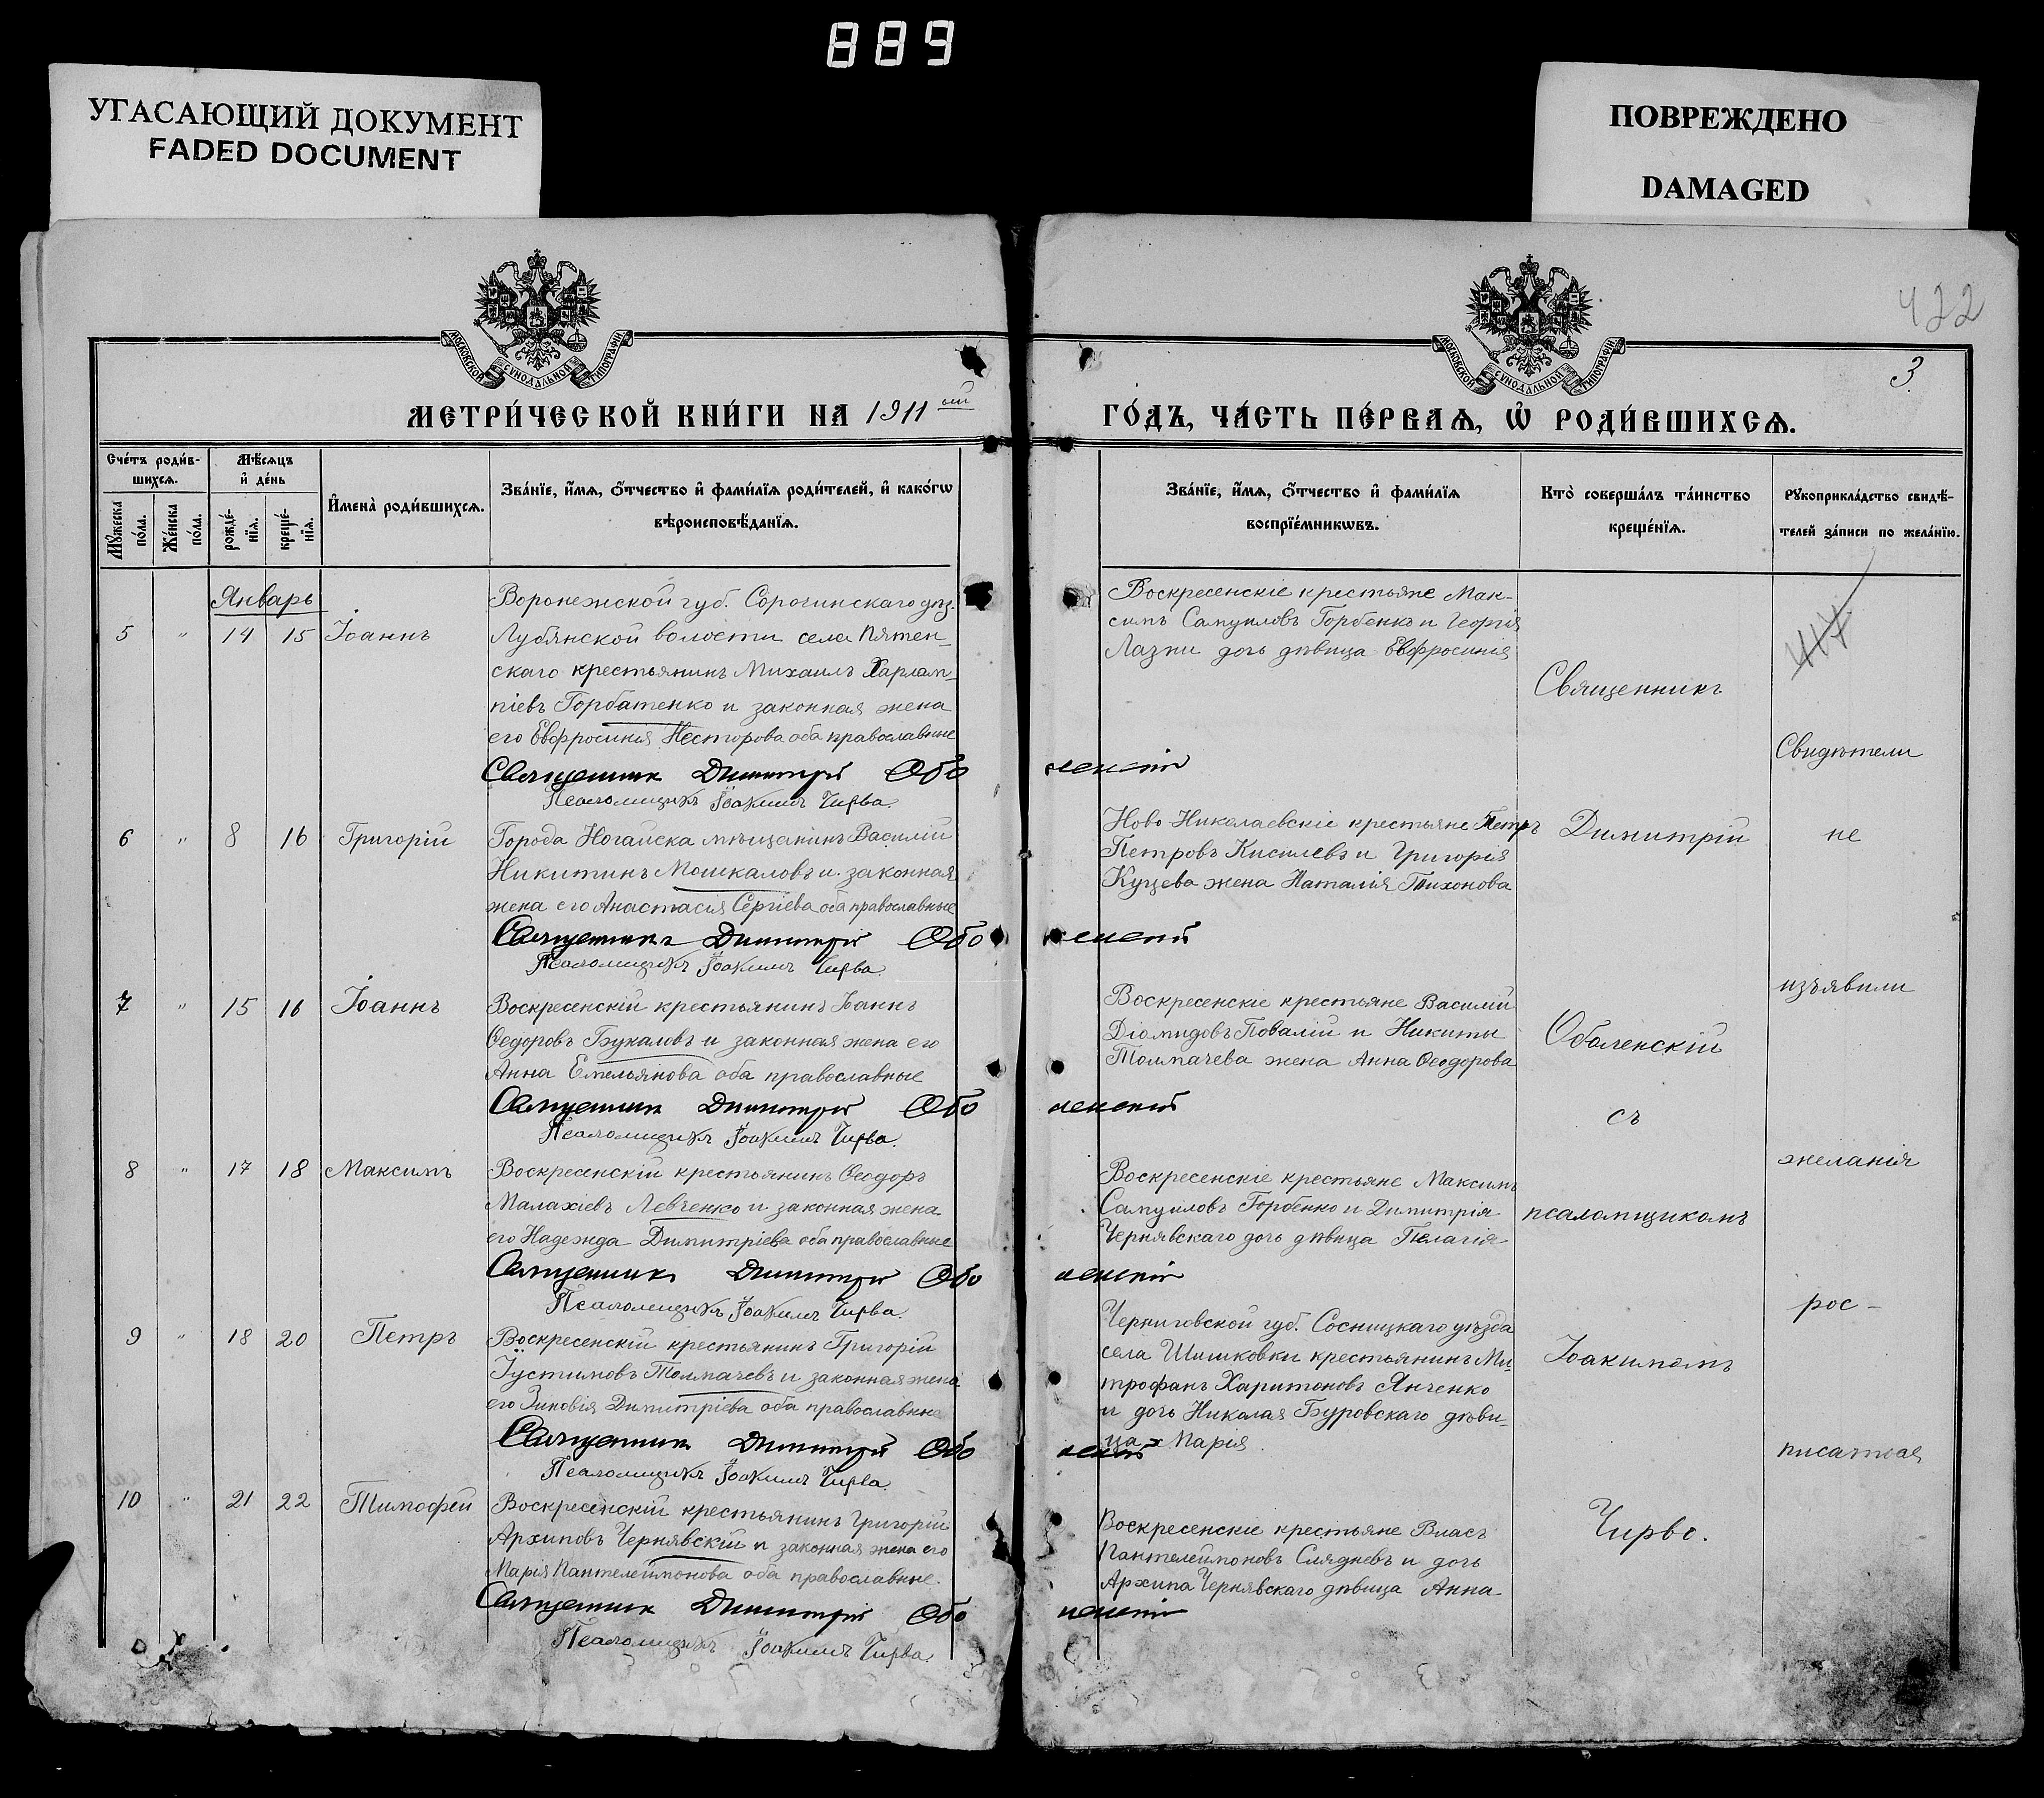 889
УГАСАЮЩИЙ ДОКУМЕНТ
FADED DOCUMENT
ПОВРЕЖДЕНО
DAMAGED
422
3.
МОСКОВСКОЙ СѴНОДАЛЬНОЙ ТИПОГРАФІИ
МОСКОВСКОЙ СѴНОДАЛЬНОЙ ТИПОГРАФІИ
МЕТРИ́ЧЕСКОЙ КНИ́ГИ НА 1911 ый
ГО́ДЪ, ЧА́СТЬ ПЕ́РВАѦ, Ѡ РОДИ́ВШИХСѦ.
Сче́тъ роди́в-
шихсѧ.
Мꙋжеска
по́ла.
Же́нска
по́ла.
Мѣ́сѧцъ
и де́нь
рожде́-
нїѧ.
креще́-
нїѧ.
Имена̀ роди́вшихсѧ.
Зва́нїе, и́мѧ, ѻ́тчество и фами́лїѧ роди́телей, и како́гѡ
вѣроисповѣ́данїѧ.
Зва́нїе, и́мѧ, ѻ́тчество и фами́лїѧ
воспрїе́мникѡвъ.
Кто̀ соверша́лъ та́инство
креще́нїѧ.
Рꙋкоприкла́дство свидѣ́-
телей за́писи по жела́нїю.
Январь
5 " 14 15 Іоаннъ
Воронежской губ. Сорочинскаго уѣз.
Лубянской волости села Пятен-
скаго крестьянинъ Михаилъ Харлам-
піевъ Горбатенко и законная жена
его Евфросинія Несторова оба православные
Священник Димитрій Обо
ленскій
Псаломщикъ Іоакимъ Чирва.
Воскресенскіе крестьяне Мак-
симъ Самуиловъ Горбенко и Георгія
Лазни дочь дѣвица Евфросинія
417
6 " 8 16 Григорій
Города Ногайска мѣщанинъ Василій
Никитинъ Мошкаловъ и законная
жена его Анастасія Сергіева оба православные
Священникъ Димитрій Обо
ленскій
Псаломщикъ Іоакимъ Чирва.
Ново Николаевскіе крестьяне Петръ
Петровъ Киселевъ и Григорія
Куцева жена Наталія Тихонова
7 " 15 16 Іоаннъ
Воскресенскій крестьянинъ Іоаннъ
Ѳедоровъ Букаловъ и законная жена его
Анна Емельянова оба православные
Священник Димитрій Обо
ленскій
Псаломщикъ Іоакимъ Чирва.
Воскресенскіе крестьяне Василій
Діомидовъ Повалій и Никиты
Толмачева жена Анна Ѳеодорова
8 " 17 18 Максимъ
Воскресенскій крестьянинъ Ѳеодоръ
Малахіевъ Левченко и законная жена
его Надежда Димитріева оба православные
Священник Димитрій Обо
ленскій
Псаломщикъ Іоакимъ Чирва.
Воскресенскіе крестьяне Максимъ
Самуиловъ Горбенко и Димитрія
Чернявскаго дочь дѣвица Пелагія
9 " 18 20 Петръ
Воскресенскій крестьянинъ Григорій
Іустиновъ Толмачевъ и законная жена
его Зиновія Димитріева оба православные
Священник Димитрій Обо
ленскій
Псаломщикъ Іоакимъ Чирва.
Черниговской губ. Сосницкаго уѣзда
села Шишковки крестьянинъ Ми-
трофанъ Харитоновъ Янченко
и дочь Николая Буровскаго дѣви-
ца Марія.
10 " 21 22 Тимофей
Воскресенскій крестьянинъ Григорій
Архиповъ Чернявскій и законная жена его
Марія Пантелеймонова оба православные.
Священник Димитрій Обо
ленскій
Псаломщикъ Іоакимъ Чирва.
Воскресенскіе крестьяне Власъ
Пантелеймоновъ Слядневъ и дочь
Архипа Чернявскаго дѣвица Анна
Священникъ
Димитрій
Оболенскій
съ
псаломщикомъ
Іоакимомъ
Чирво.
Свидѣтели
не
изъявили
желанія
рос-
писаться